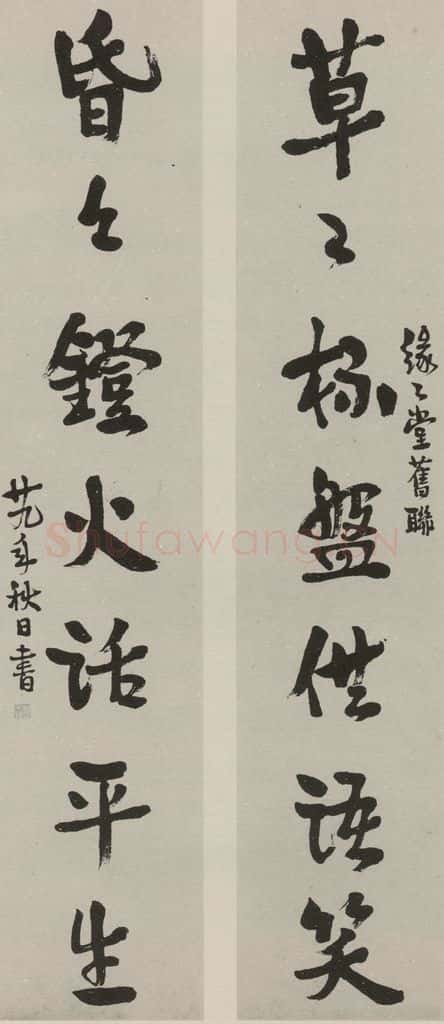 草々杯盤供語笑
緣々堂舊聯
昏々鐙火話平生
廿九年秋日書
Shufawang.CN